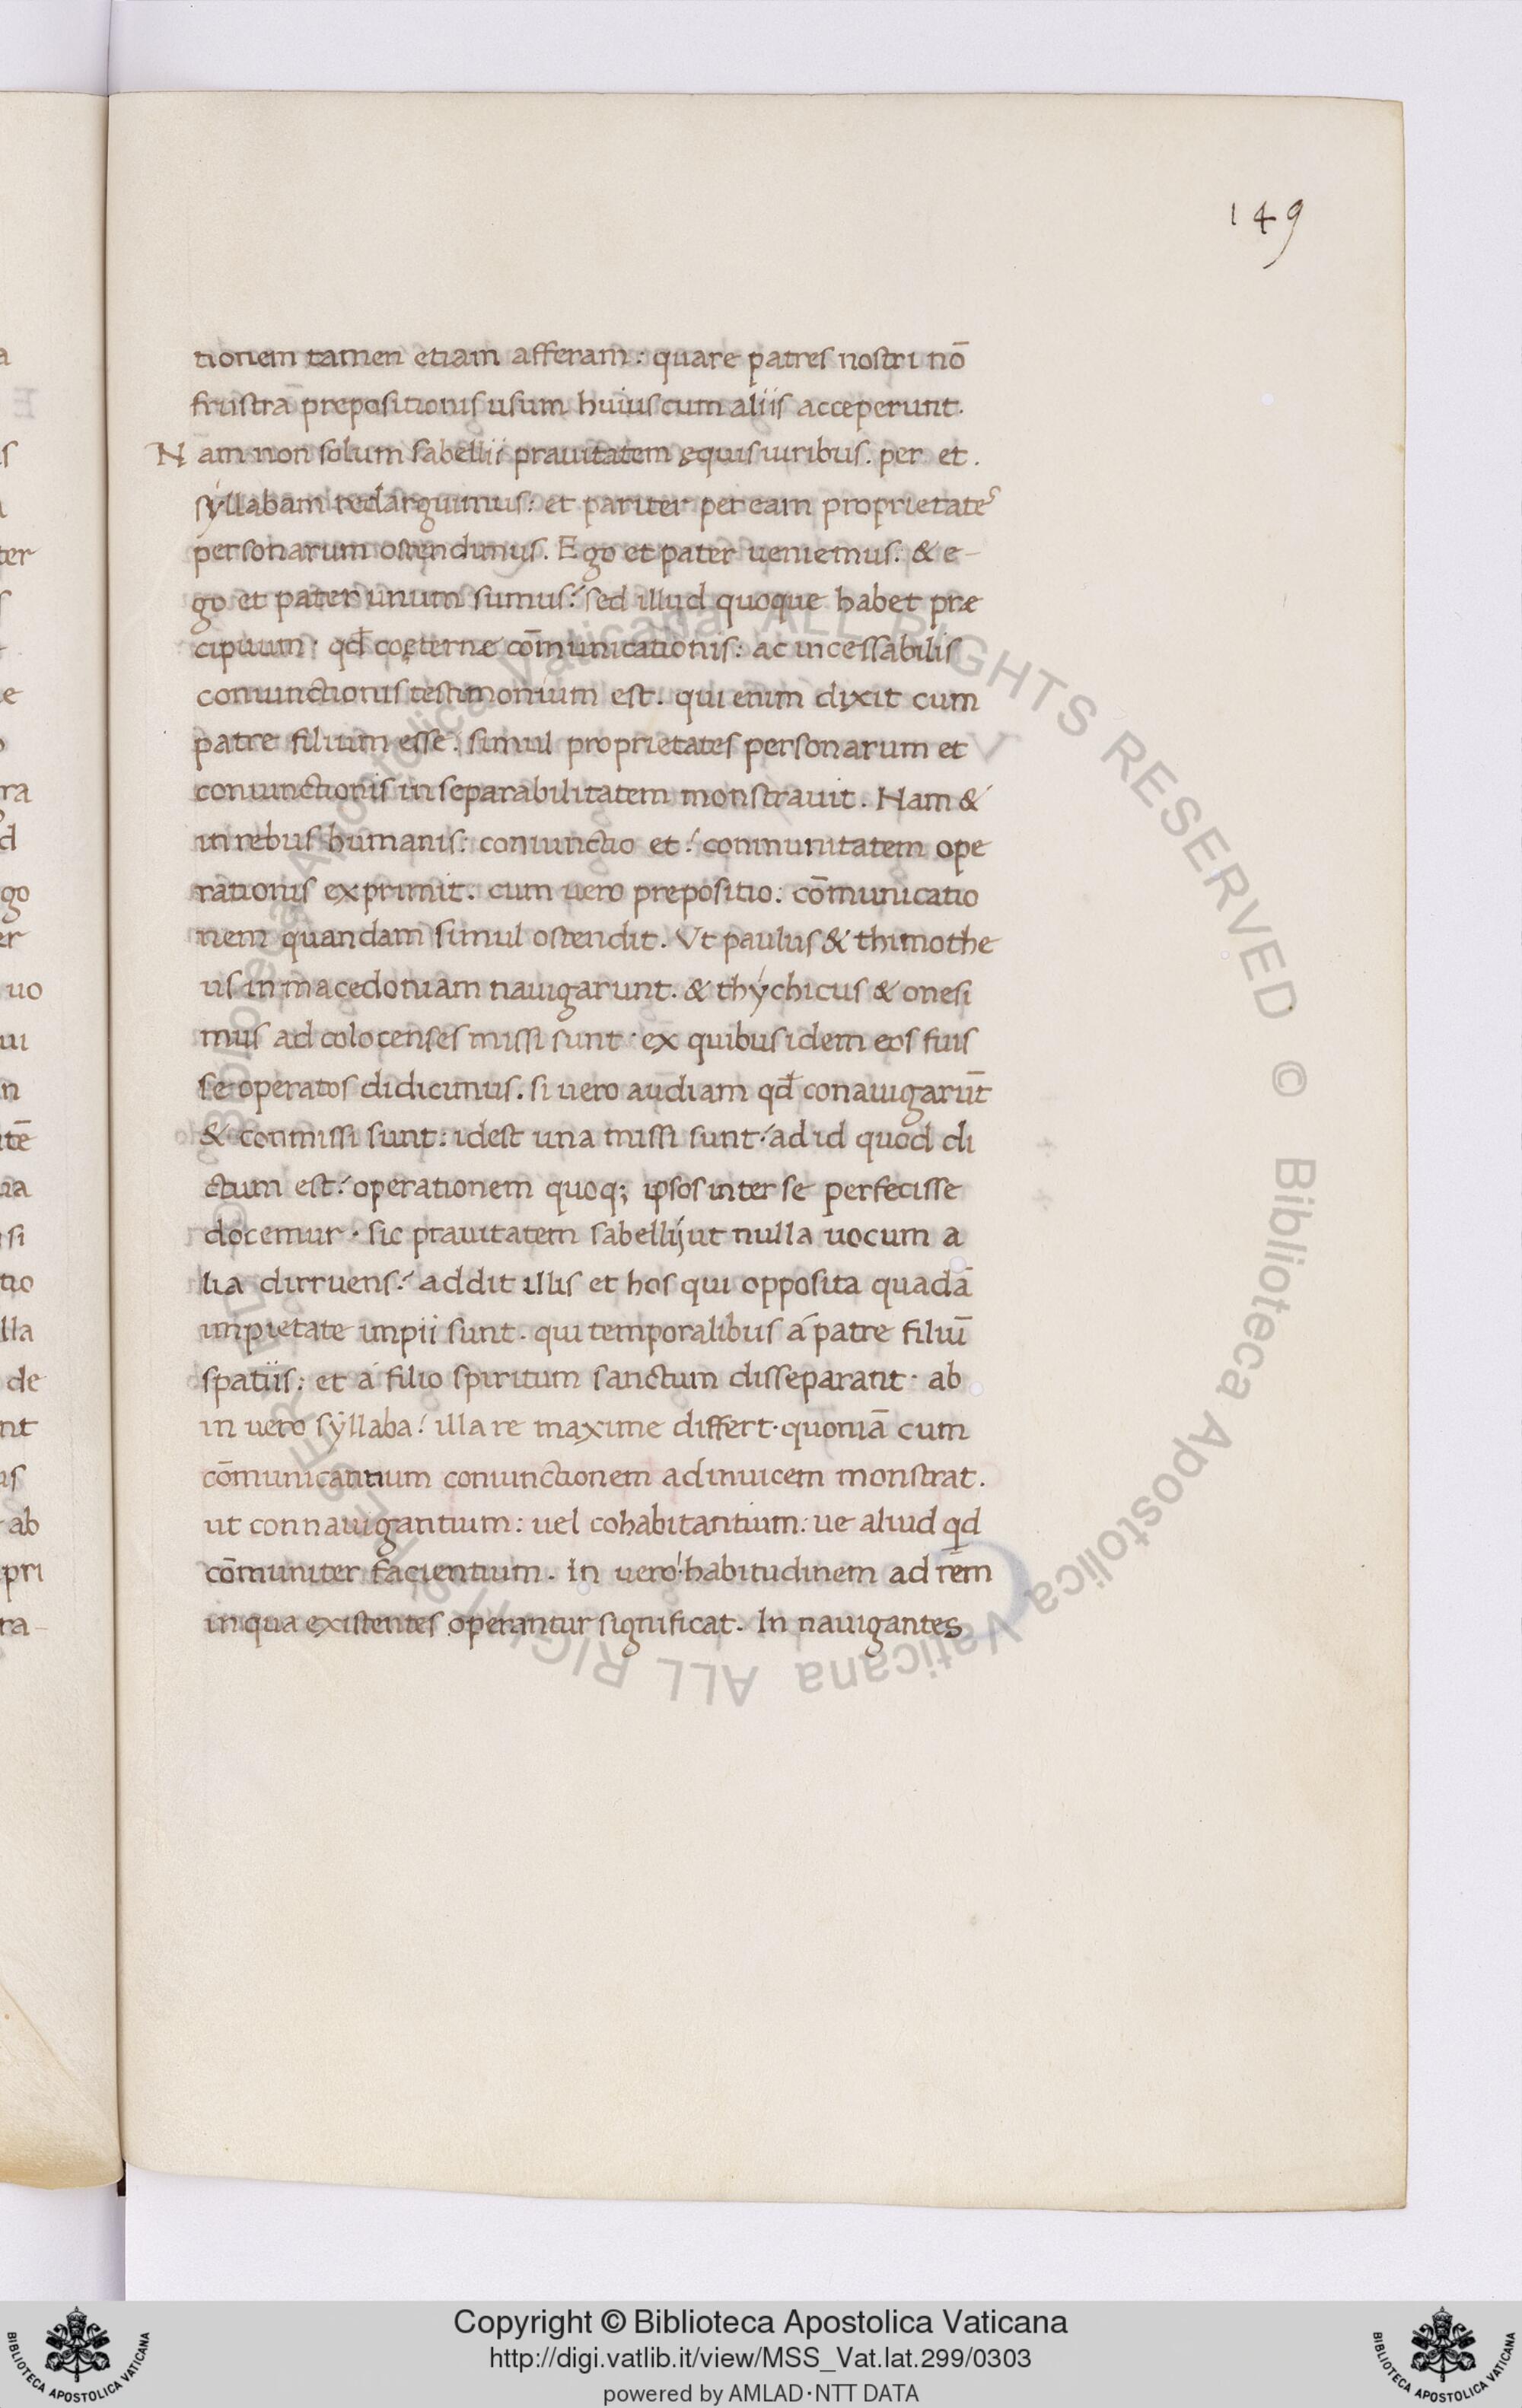 149
tionem tamen etiam afferam: quare patres nostri nō
frustra prepositionis usum huius cum aliis acceperunt.
Nam non solum sabellii prauitatem ęquis uiribus. per et.
syllabam redarguimus: et pariter per eam proprietates
personarum ostendimus. Ego et pater ueniemus. & e-
go et pater unum sumus: sed illud quoque habet præ
cipuum· qđ coęternæ cōmunicationis: ac incessabilis
coniunctionis testimonium est. qui enim dixit cum
patre filium esse. simul proprietates personarum et
coniunctionis inseparabilitatem monstrauit. Nam &
in rebus humanis: coniunctio et: conmunitatem ope
rationis exprimit. cum uero prepositio: cōmunicatio
nem quandam simul ostendit. Vt paulus & thimothe
us in macedoniam nauigarunt. & thýchicus & onesi
mus ad colocenses missi sunt· ex quibus idem eos fuis
se operatos didicimus. si uero audiam qđ conauigarūt
& conmissi sunt: idest una missi sunt: ad id quod di
ctum est: operationem quoq; ipsos inter se perfecisse
docemur· sic prauitatem sabellij ut nulla uocum a
lia dirruens: addit illis et hos qui opposita quadā
impietate impii sunt. qui temporalibus á patre filiū
spatiis: et á filio spiritum sanctum disseparant· ab
in uero sÿllaba: illa re maxime differt· quoniā cum
cōmunicantium coniunctionem adinuicem monstrat.
ut connauigantium: uel cohabitantium: ue aliud qd
cōmuniter facientium. In uero· habitudinem ad rem
in qua existentes operantur significat. In nauigantes
Copyright © Biblioteca Apostolica Vaticana
http://digi.vatlib.it/view/MSS_Vat.lat.299/0303
powered by AMLAD·NTT DATA